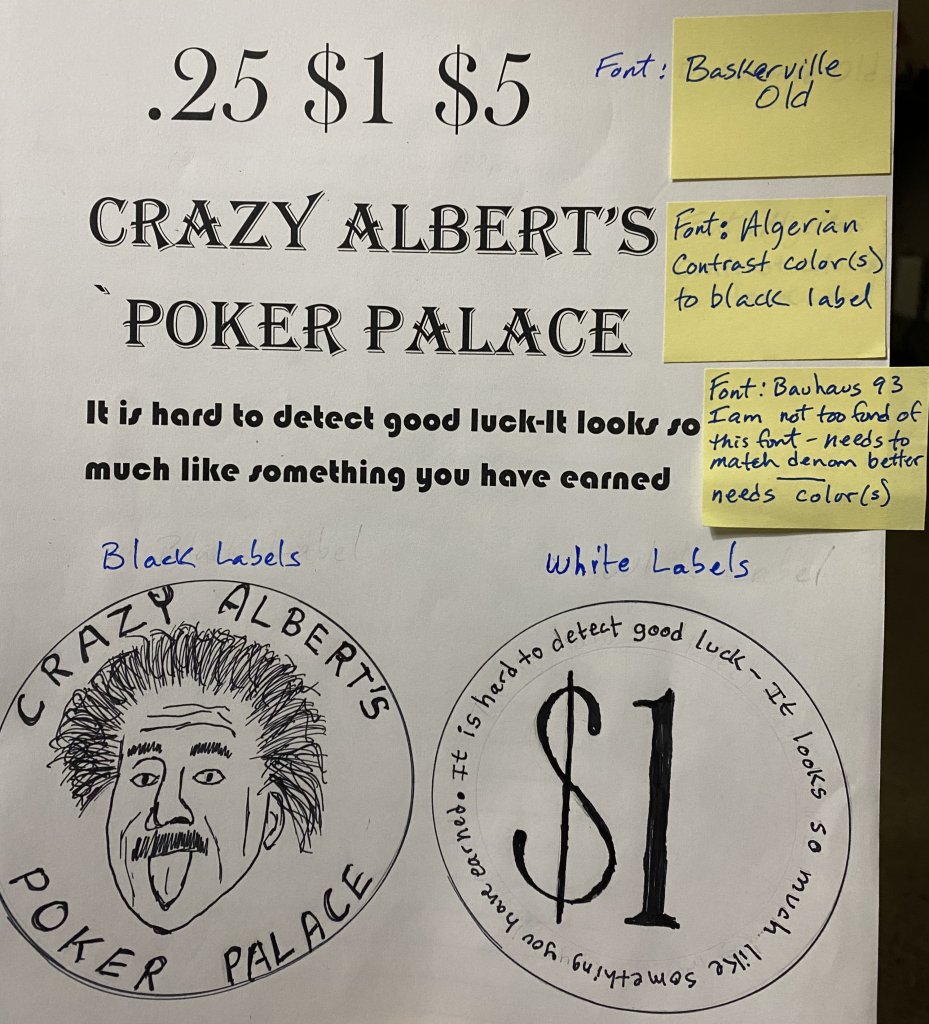 .25 $1 $5
Font: Baskerville
Old
CRAZY ALBERT'S
`POKER PALACE
Font: Algerian
Contrast color(s)
to black label
It is hard to detect good luck-It looks so
much like something you have earned
Font: Bauhaus 93
I am not too fond of
this font - needs to
match denom better
needs color(s)
Black Labels
White Labels
CRAZY ALBERT'S
POKER PALACE
It is hard to detect good luck - It looks so much like something you have earned •
$1